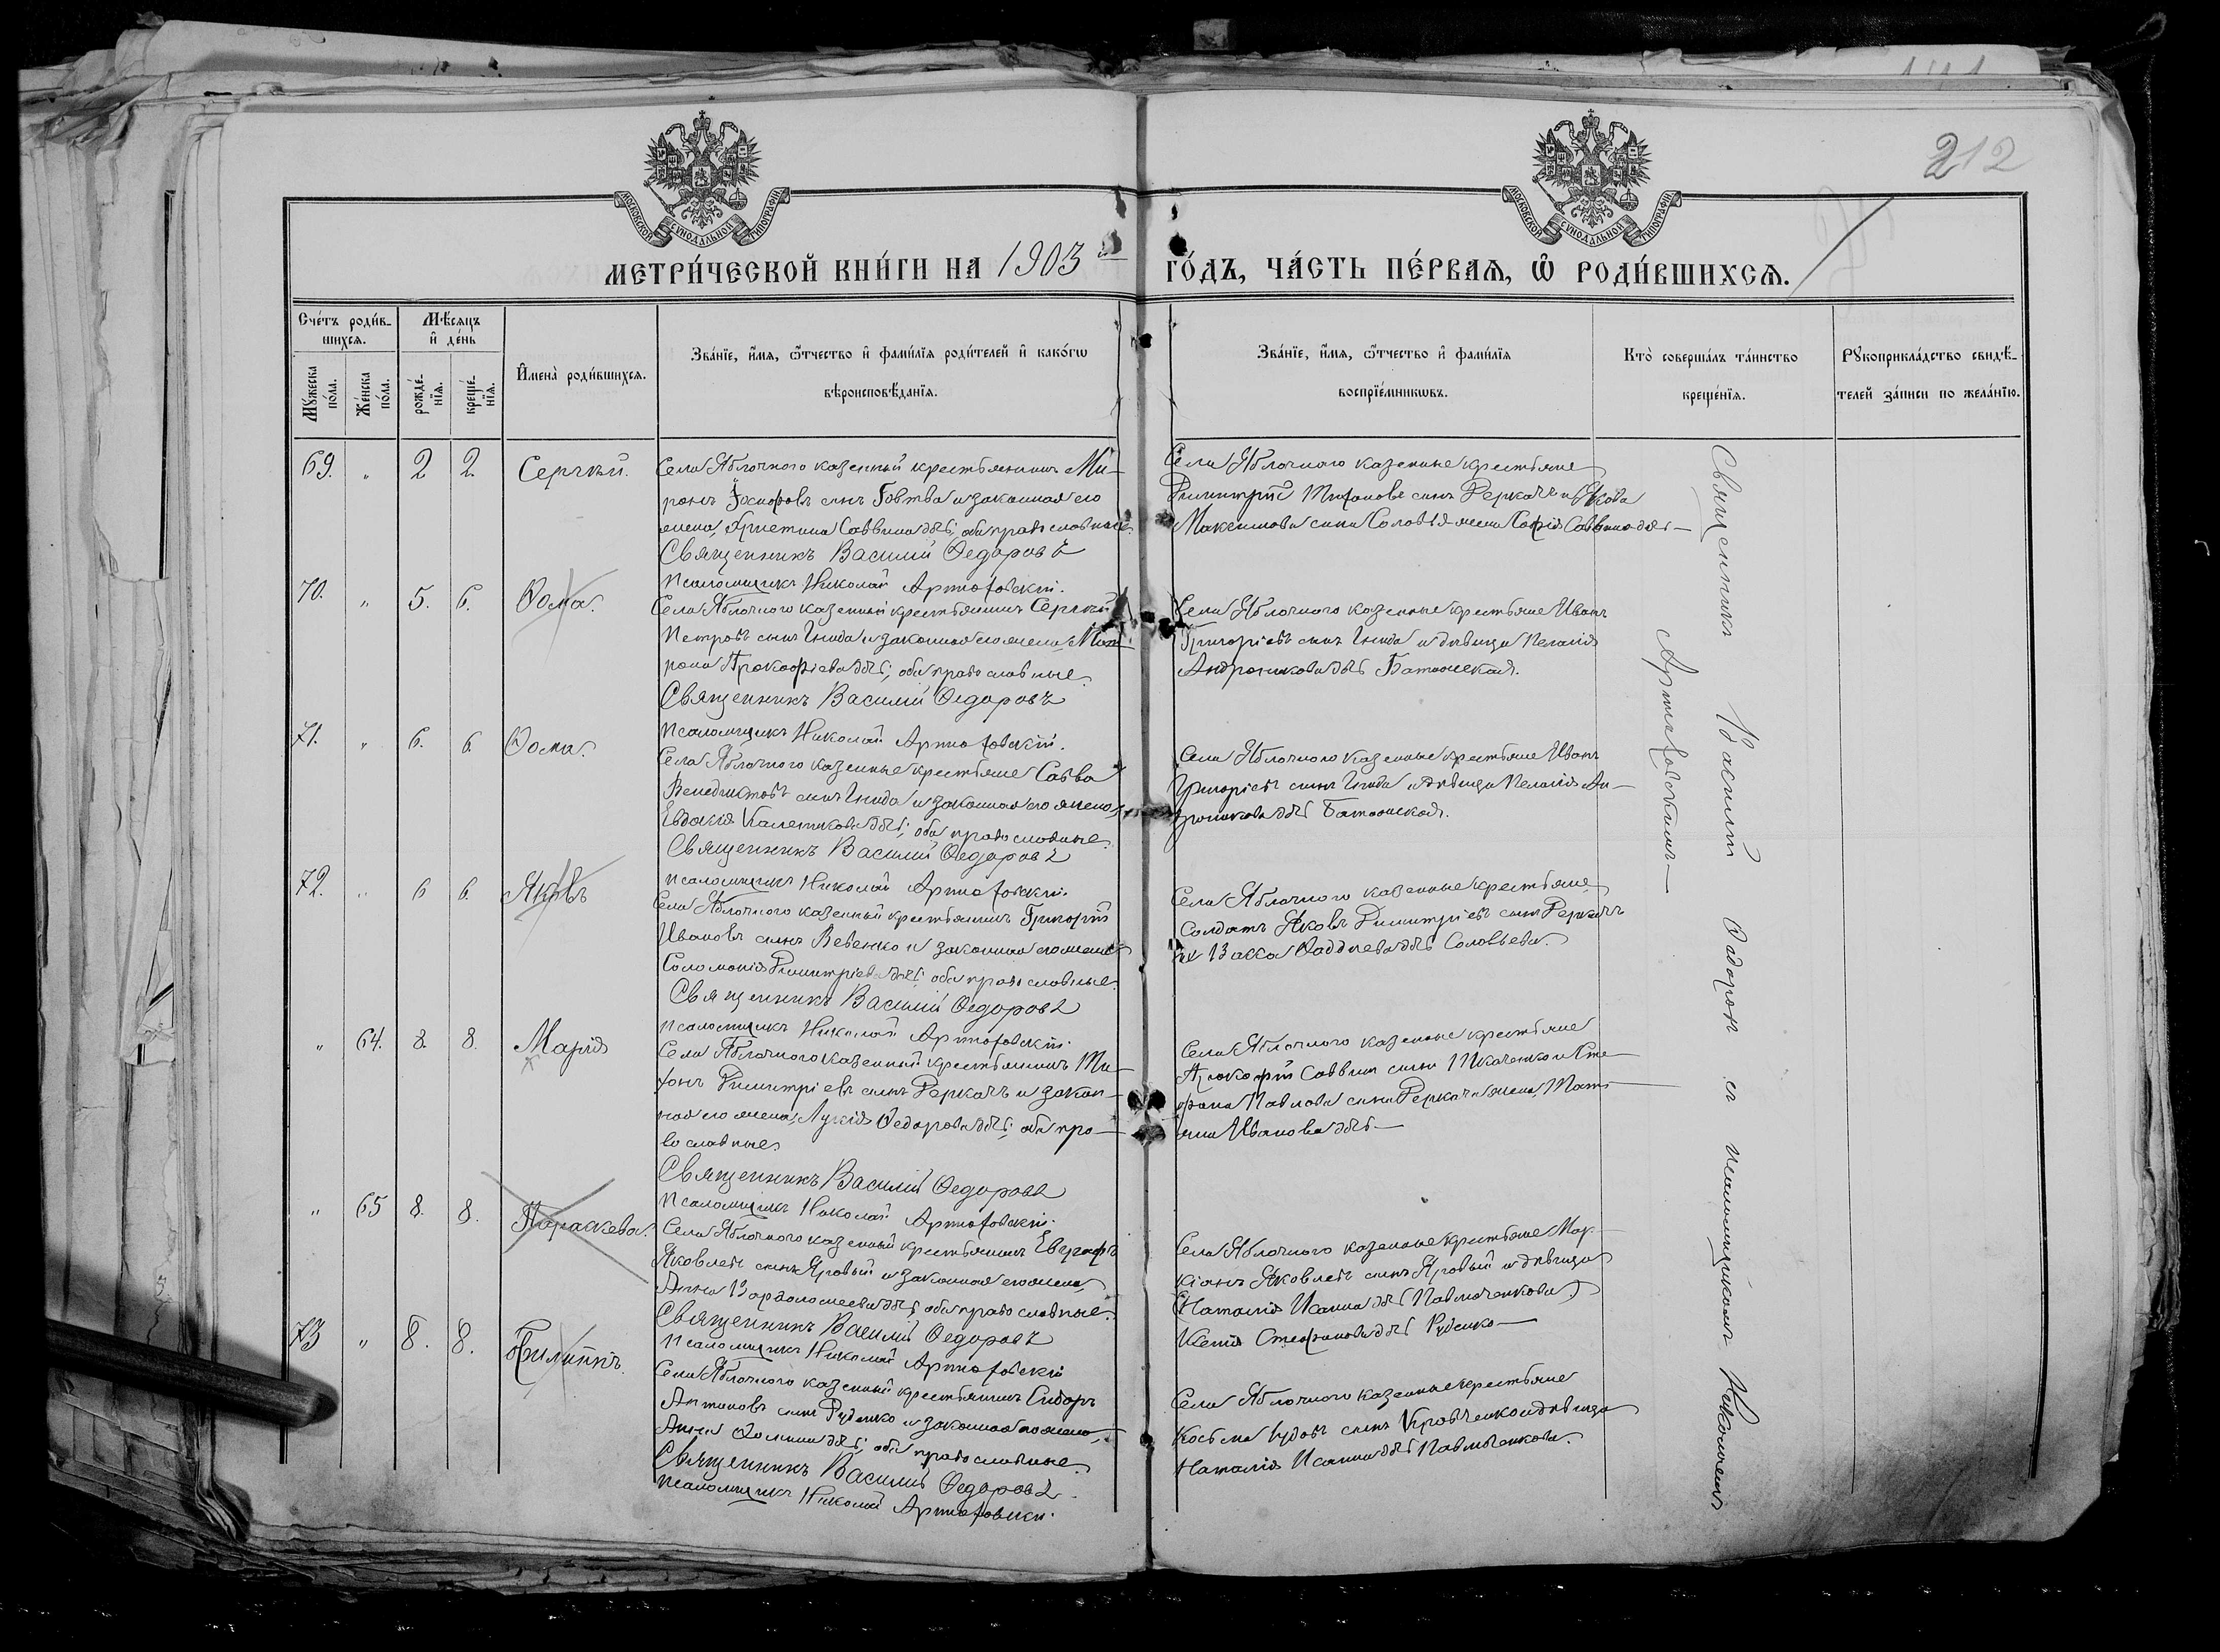 212
МОСКОВСКОЙ СѴНОДАЛЬНОЙ ТИПОГРАФІИ
МОСКОВСКОЙ СѴНОДАЛЬНОЙ ТИПОГРАФІИ
МЕТРИ́ЧЕСКОЙ КНИ́ГИ НА 1903 й ГО́ДЪ, ЧА́СТЬ ПЕ́РВАѦ, Ѽ РОДИ́ВШИХСѦ.
Сче́тъ роди́в-
шихсѧ.
Мꙋ́жеска
по́ла.
Же́нска
по́ла.
Мѣ́сѧцъ
и҆ де́нь
рожде́-
нїѧ.
креще́-
нїѧ.
И҆мена̀ роди́вшихсѧ.
Зва́нїе, и҆́мѧ, ѻ҆́тчество и҆ фами́лїѧ роди́телей и҆ како́гѡ
вѣроисповѣ́данїѧ.
Зва́нїе, и҆́мѧ, ѻ҆́тчество и҆ фами́лїѧ
воспрїе́мникѡвъ.
Кто̀ соверша́лъ та́инство
креще́нїѧ.
Рꙋкоприкла́дство свидѣ́-
телей за́писи по жела́нїю.
69. " 2 2. Сергій.
Села Яблочного казенный крестьянинъ Ми-
ронъ Іосифовъ сынъ Говтва и законная его
жена Христина Саввина дѣт; оба православные.
Священникъ Василій Ѳедоровъ
Псаломщикъ Николай Артюховскій.
Села Яблочного казенные крестьяне
Димитрій Тихоновъ сынъ Деркачъ и Якова
Максимова сына Соловья жена Софія Саввина дѣт
70. " 5. 6. Ѳома.
Села Яблочного казенный крестьянинъ Сергій
Петровъ сынъ Гнида и законная его жена Мат-
рона Прокофіева дѣт; оба православные.
Священникъ Василій Ѳедоровъ
Псаломщикъ Николай Артюховскій.
Села Яблочного казенные крестьяне Иванъ
Григорьевъ сынъ Гнида и дѣвица Пелагія
Андроникова дѣт
71. " 6. 6 Ѳома.
Села Яблочного казенные крестьяне Савва
Венедиктовъ сынъ Гнида и законная его жена
Евдокія дѣт; оба православные.
Священникъ Василій Ѳедоровъ
Псаломщикъ Николай Артюховскій.
Села Яблочного казенные крестьяне Иванъ
Григорьевъ сынъ Гнида и дѣвица Пелагія Ан-
дроникова дѣт
72. " 6 6. Яковъ
Села Яблочного казенный крестьянинъ Григорій
Ивановъ сынъ и законная его жена
Соломонія Димитріева дѣт; оба православные.
Священникъ Василій Ѳедоровъ
Псаломщикъ Николай Артюховскій.
Села Яблочного казенные крестьяне
Солдатъ Яковъ Димитріевъ сынъ Деркачъ
и Васса Ѳаддеева дѣт Соловьева.
" 64. 8. 8. Марія
Села Яблочного казенный крестьянинъ Ти-
хонъ Димитріевъ сынъ Деркачъ и закон-
ная его жена Лукія Ѳедорова дѣт; оба пра-
вославные.
Священникъ Василій Ѳедоровъ
Псаломщикъ Николай Артюховскій.
Села Яблочного казенные крестьяне
Прокофій Саввинъ сынъ Ткаченко и Сте-
фана Павлова сына Деркача жена Тать-
яна Иванова дѣт
" 65 8. 8. Параскева.
Села Яблочного казенный крестьянинъ Евграфъ
Яковлевъ сынъ Яровый и законная его жена
Анна Варѳоломеева дѣт; оба православные.
Священникъ Василій Ѳедоровъ
Псаломщикъ Николай Артюховскій
Села Яблочного казенные крестьяне Мар-
кіанъ Яковлевъ сынъ Яровый и дѣвица
(Наталія Исаина дѣт Павлюченкова)
Ксенія Стефанова дѣт Руденко
73 " 8. 8. Филиппъ.
Села Яблочного казенный крестьянинъ Сидоръ
Антоновъ сынъ Руденко и законная его жена
Анна Ѳомина дѣт; оба православные.
Священникъ Василій Ѳедоровъ
Псаломщикъ Николай Артюховскій.
Села Яблочного казенные крестьяне
Косьма сынъ Кравченко и дѣвица
Наталія Исаина дѣт Павлюченкова.
Священникъ Василій Ѳедоровъ съ псаломщикомъ Николаемъ
Артюховскимъ